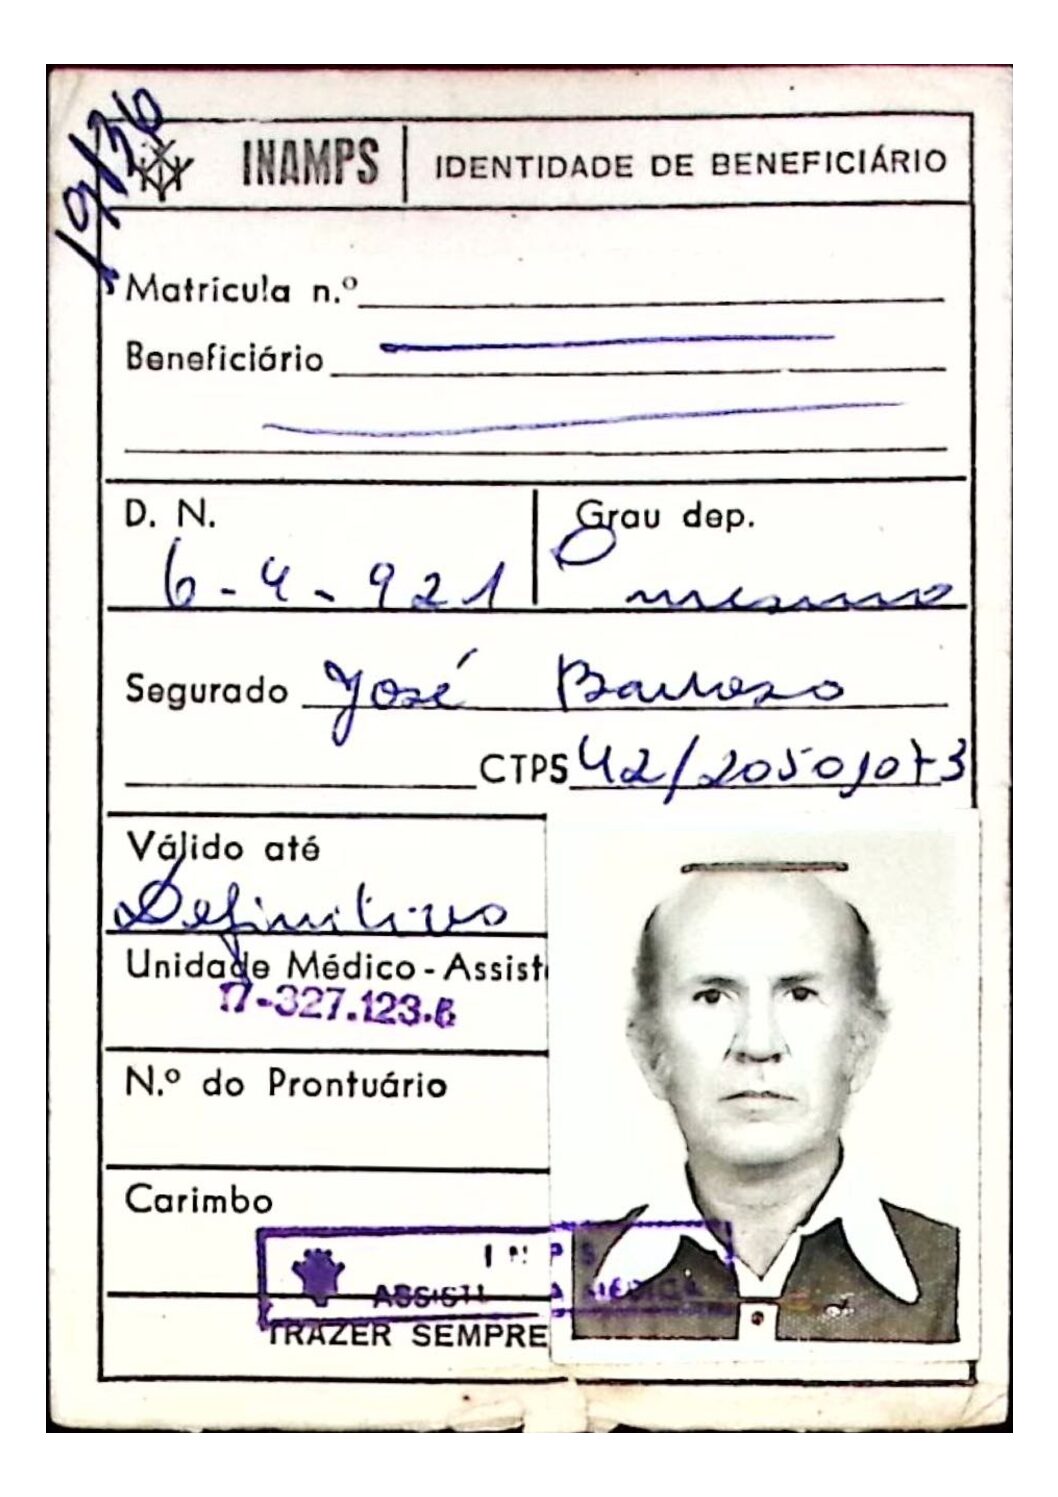 19/36
INAMPS IDENTIDADE DE BENEFICIÁRIO
Matrícula n.º
Beneficiário
D. N. Grau dep.
6-4-921 O mesmo
Segurado José Barroso
CTPS 42/20501073
Válido até
Definitivo
Unidade Médico-Assist
17-327.123.6
N.º do Prontuário
Carimbo
I N P S
ASSISTÊ A MÉDICA
TRAZER SEMPRE